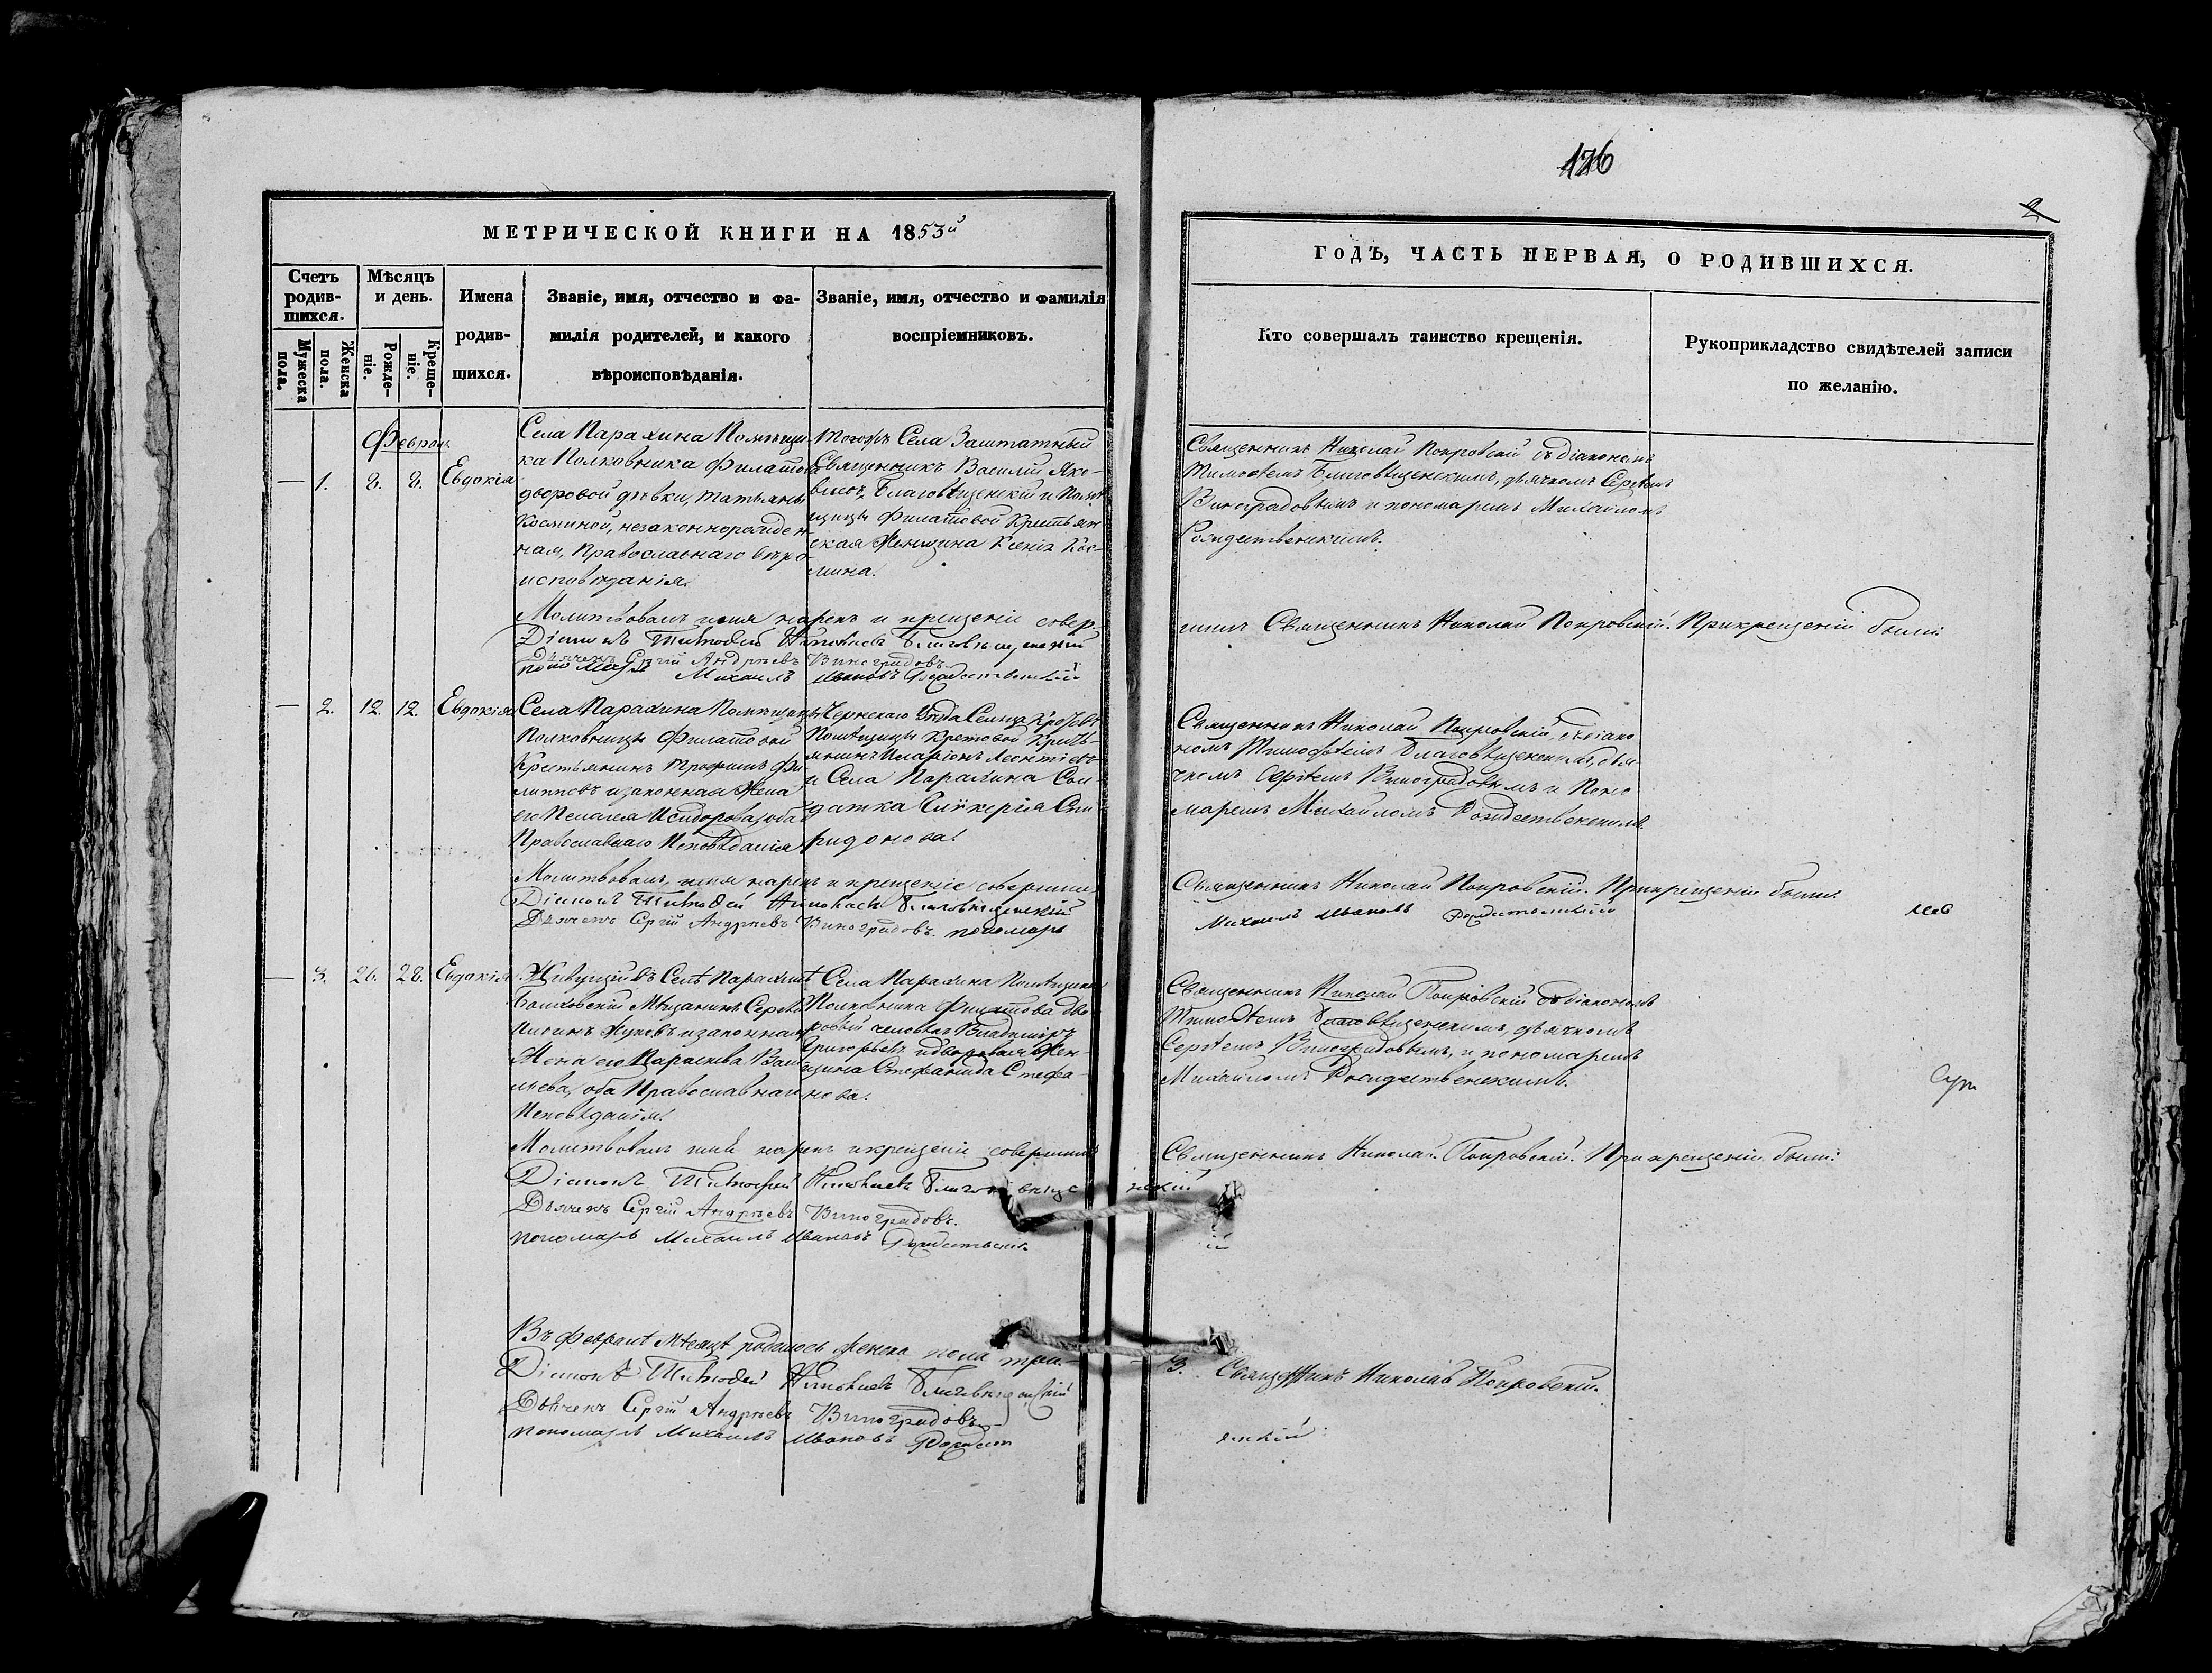 126
2
МЕТРИЧЕСКОЙ КНИГИ НА 1853й
ГОДЪ, ЧАСТЬ ПЕРВАЯ, О РОДИВШИХСЯ.
Счетъ родив-шихся.
Мужеска пола.
Женска пола.
Мѣсяцъ и день.
Рожде-ніе.
Креще-ніе.
Имена
родив-
шихся.
Званіе, имя, отчество и фа-
милія родителей, и какого
вѣроисповѣданія.
Званіе, имя, отчество и фамилія
воспріемниковъ.
Кто совершалъ таинство крещенія.
Рукоприкладство свидѣтелей записи
по желанію.
Феврал
— 1. 8. 8. Евдокія
Села Парахина Помѣщи
ка Полковника Филатова
дворовой дѣвки, Татьяны
Косминой, незаконнорожден
ная, Православнаго вѣро
исповѣданія.
Тогожъ Села Заштатный
Священникъ Василій Яко-
влевъ Благовѣщенскій и Помѣ
щицы Филатовой Крестьян
ская Женщина Ксенія Кос-
мина.
Священникъ Николай Покровскій съ діакономъ
Тимофеемъ Благовѣщенскимъ, дьячкомъ Сергѣемъ
Виноградовымъ и пономаремъ Михайломъ
Рождественскимъ.
Молитвовалъ имя нарекъ и крещеніе совер-
шилъ Священникъ Николай Покровскій. При крещеніи были:
Діаконъ Тимофей Благовѣщенскій
Дьячекъ Сергій Андреевъ Виноградовъ
пономарь Михаилъ Ивановъ Рождественскій
— 2. 12. 12. Евдокія
Села Парахина Помѣщицы
Полковницы Филатовой
Крестьянинъ Трофимъ Фи
липповъ и законная Жена
его Пелагея Исидорова, оба
Православнаго Исповѣданія
Чернскаго Уѣзда Сельца
Помѣщицы Кретовой Кресть-
янинъ Иларіонъ Леонтіевъ
и Села Парахина Сол-
датка Гликерія Спи-
ридонова.
Священникъ Николай Покровскій, съ діако
номъ Тимофѣемъ Благовѣщенскимъ, дья
чкомъ Сергѣемъ Виноградовымъ и Поно
маремъ Михайломъ Рождественскимъ.
Молитвовалъ, имя нарекъ и крещеніе совершилъ
Священникъ Николай Покровскій. При крещеніи были:
Діаконъ Тимофей Благовѣщенскій
Дьячекъ Сергій Андреевъ Виноградовъ. пономарь
Михаилъ Ивановъ Рождественскій
— 3. 26. 28. Евдокія
Живущій въ Селѣ Парахинѣ
Болховскій Мѣщанинъ Сергѣй
Ильинъ Жуковъ и законная
Жена его Параскева Васи
льева, оба Православнаго
Исповѣданія.
Села Парахина Помѣщика
Полковника Филатова дво
ровый человѣкъ Владиміръ
Григорьевъ и дворовая Жен-
щина Стефанида Стефа-
нова.
Священникъ Николай Покровскій съ діакономъ
Тимофѣемъ Благовѣщенскимъ, дьячкомъ
Сергѣемъ Виноградовымъ, и пономаремъ
Михайломъ Рождественскимъ.
Молитвовалъ имя нарекъ и крещеніе совершилъ
Священникъ Николай Покровскій. При крещеніи были:
Діаконъ Тимофей Благовѣщенскій
Дьячекъ Сергій Андреевъ Виноградовъ.
пономарь Михаилъ Ивановъ Рождественскій
Въ Февралѣ мѣсяцѣ родилось женска пола три. — 3. Священникъ Николай Покровскій.
Діаконъ Тимофей Благовѣщенскій
Дьячекъ Сергій Андреевъ Виноградовъ
пономарь Михаилъ Ивановъ Рождественскій